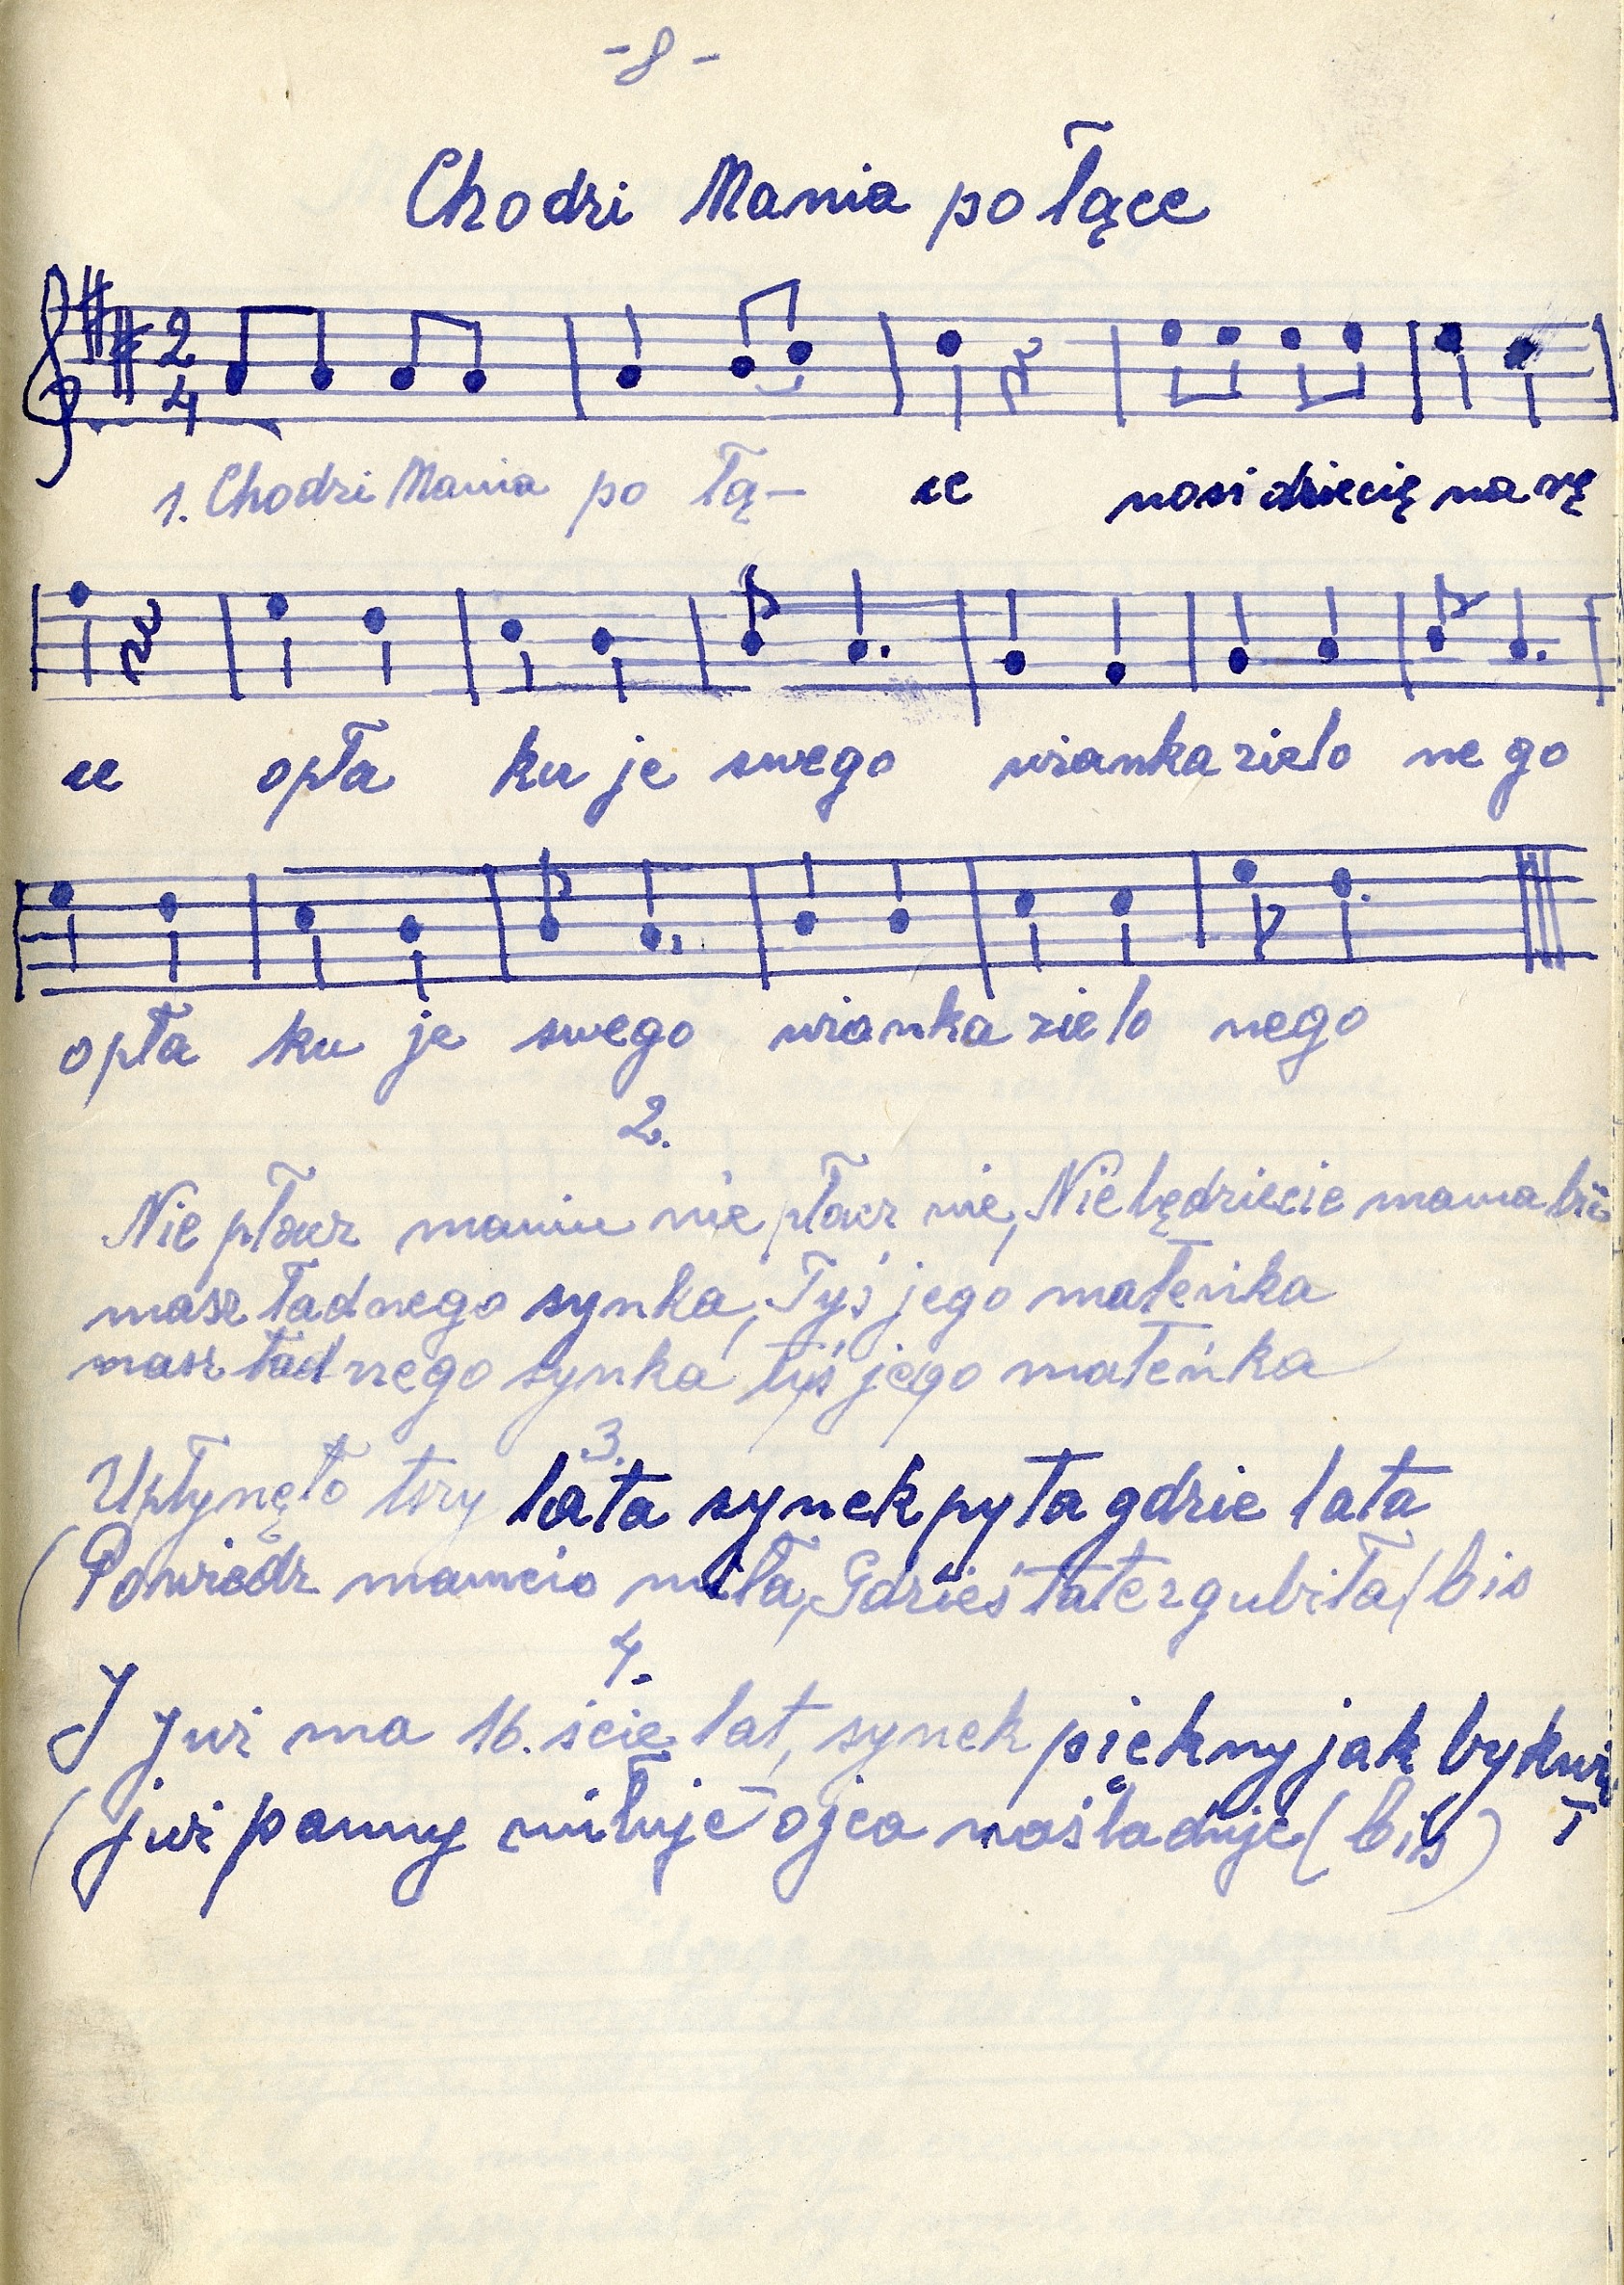 - 8 -
Chodzi Mania po łące
2
4
1. Chodzi Mania po łą- ce nosi dziecię na rę
ce opła ku je swego wianka zielo ne go
opła ku je swego wianka zielo nego
2.
Nie płacz maniu nie płacz nie, Nie będziecie mama bić
masz ładnego synka, Tyś jego mateńka
masz ładnego synka tyś jego mateńka
3.
Upłynęło trzy lata synek pyta gdzie tata
(Powiedz mamcio miła, Gdzieś tatę zgubiła) bis
4.
I już ma 16.ście lat, synek piękny jak by
(już panny miłuje ojca naśladuje (bis)